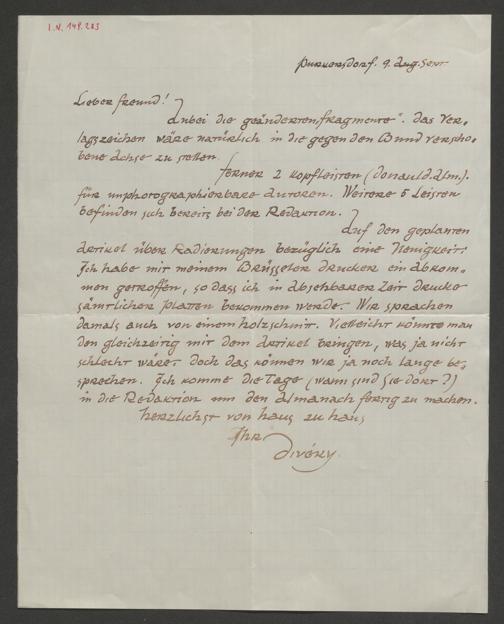 I.N. 149.283
Purkersdorf. 9. Aug. Sept
Lieber Freund!
Anbei die geänderten „Fragmente". Das Ver-
lagszeichen wäre natürlich in die gegen den Bund verscho-
bene Achse zu stellen.
Ferner 2 Kopfleisten (Donauld. Alm.).
für unphotographierbare Autoren. Weitere 5 Leisten
befinden sich bereits bei der Redaktion.
Auf den geplanten
Artikel über Radierungen bezüglich eine Neuigkeit:
Ich habe mit meinem Brüsseler Drucker ein Abkom-
men getroffen, so dass ich in absehbarer Zeit Drucke
sämtlicher Platten bekommen werde. Wir sprachen
damals auch von einem Holzschnitt. Vielleicht könnte man
den gleichzeitig mit dem Artikel bringen, was ja nicht
schlecht wäre. Doch das können wir ja noch lange be-
sprechen. Ich komme die Tage (wann sind Sie dort?)
in die Redaktion um den Almanach fertig zu machen.
Herzlichst von Haus zu Haus
Ihr
Divéky.